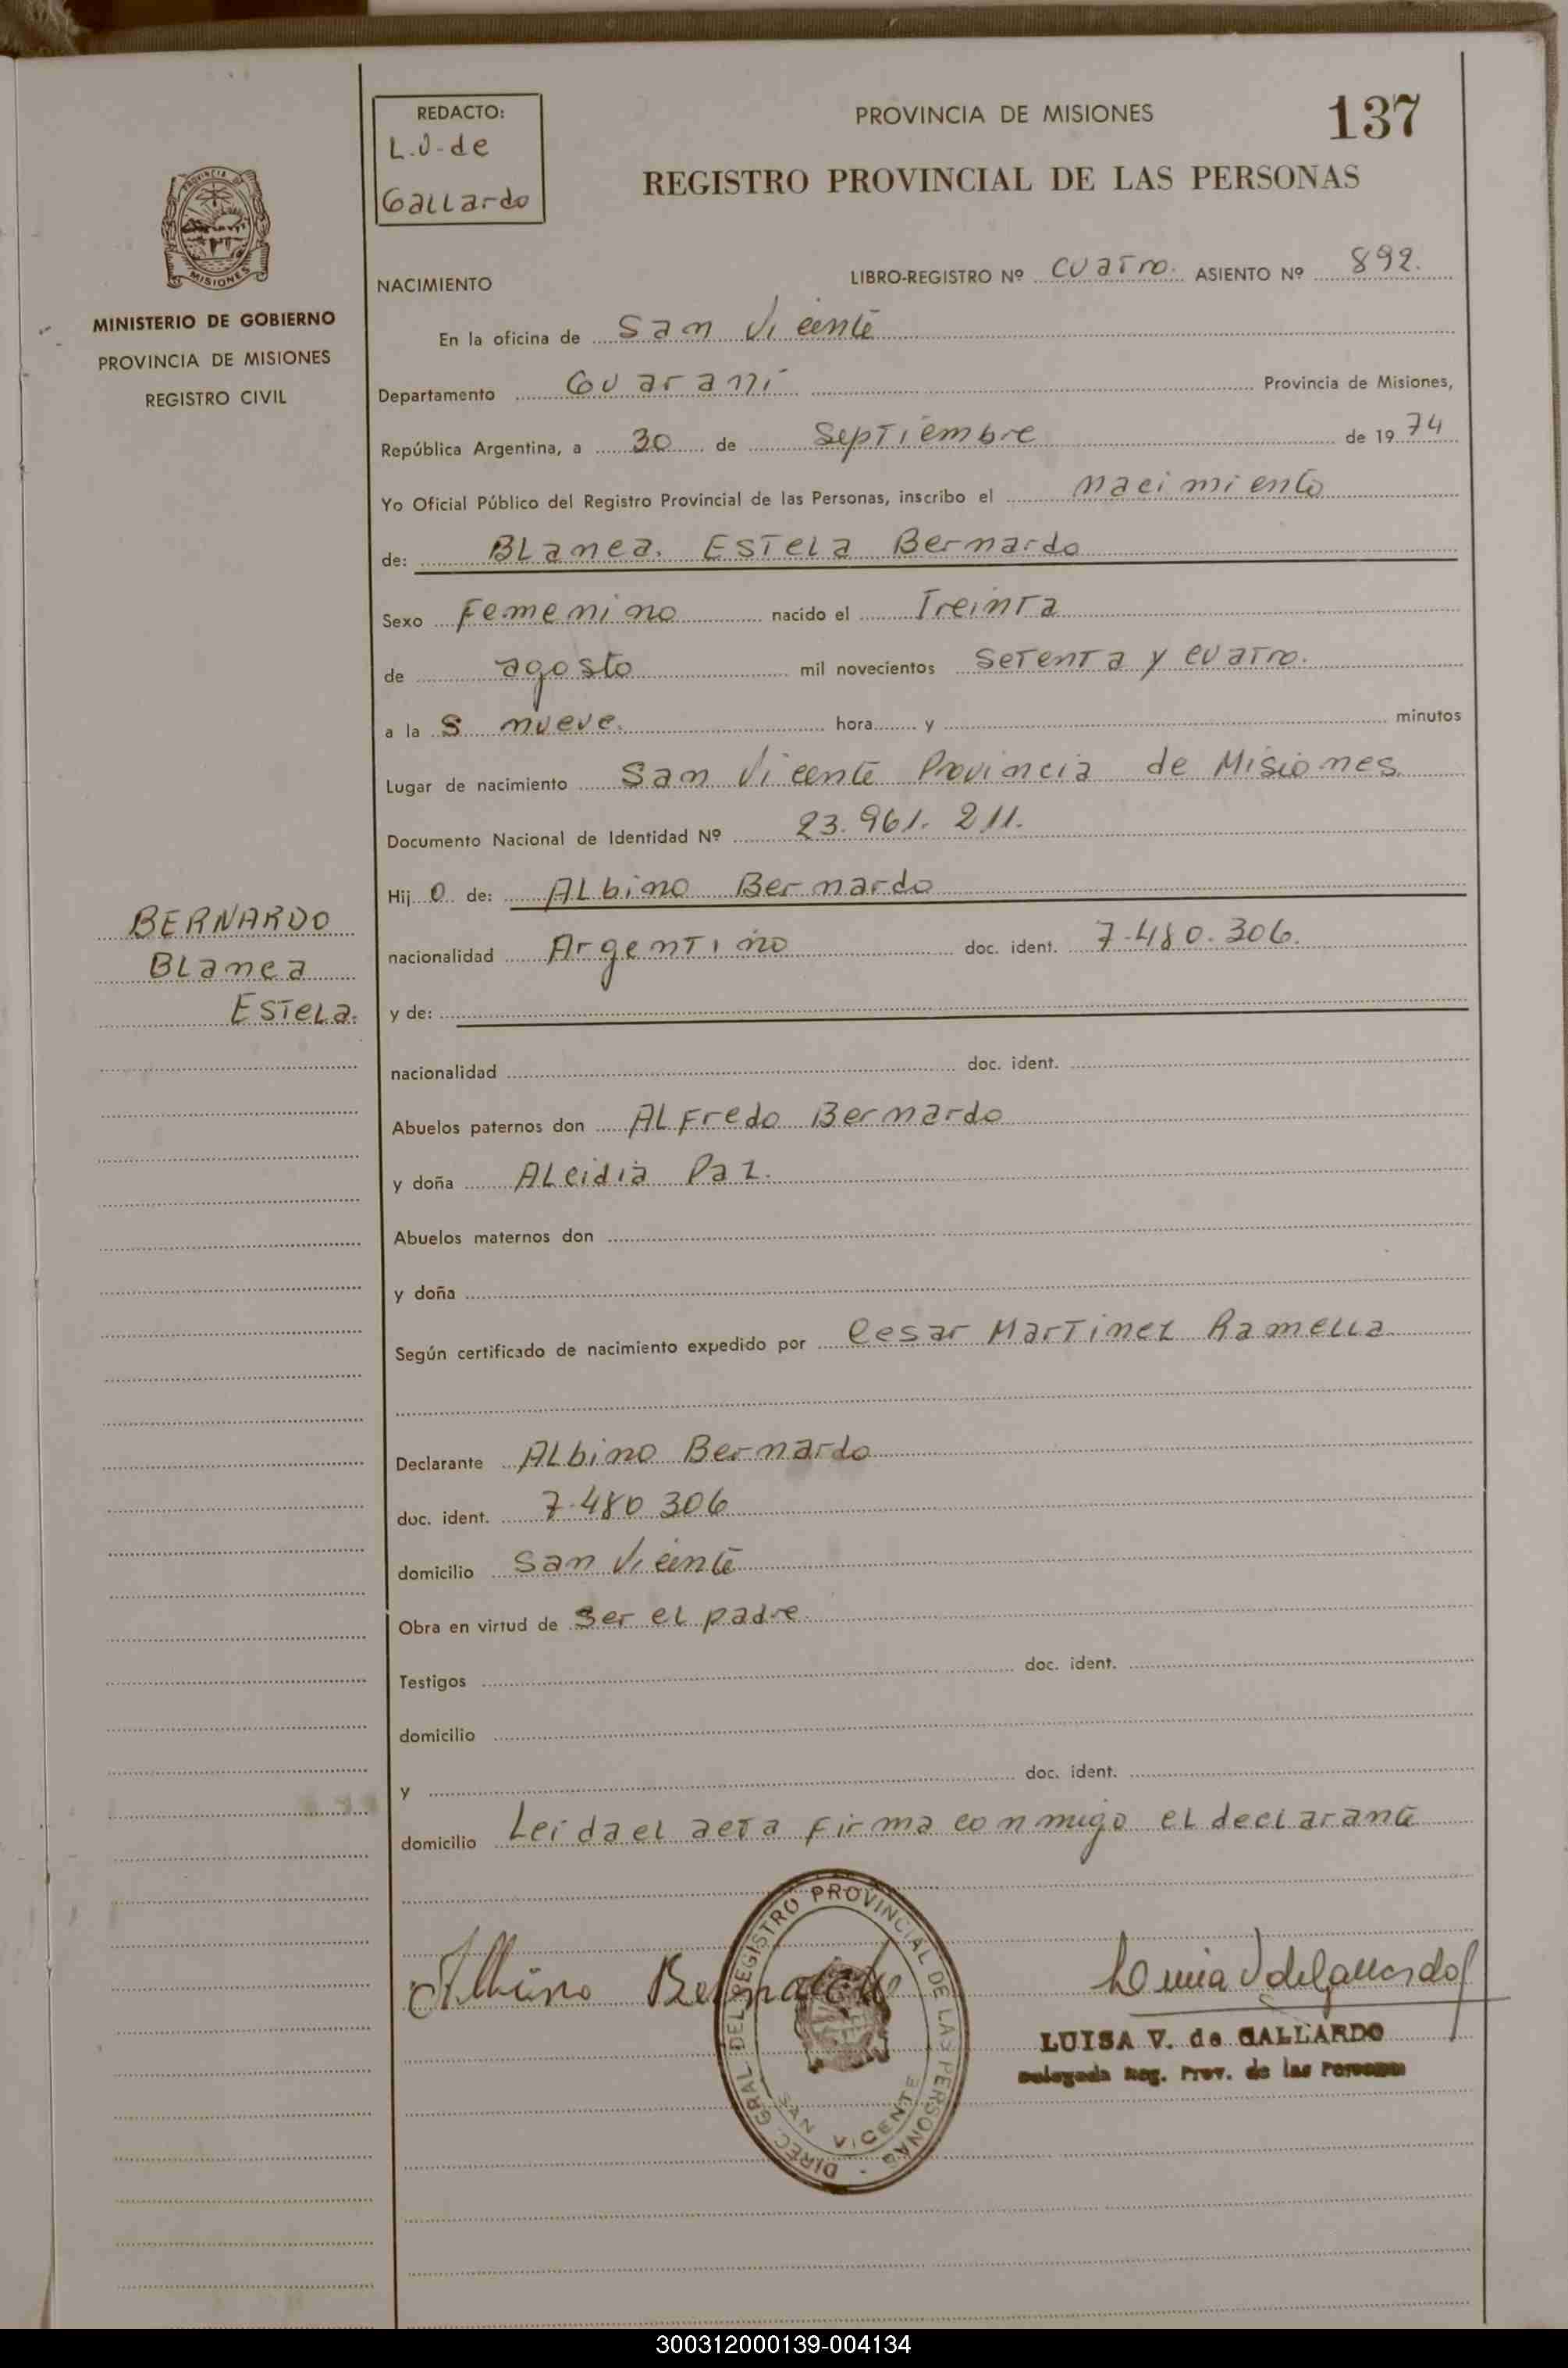 REDACTO:
L.V. de
Gallardo
PROVINCIA DE MISIONES
137
REGISTRO PROVINCIAL DE LAS PERSONAS
PROVINCIA DE
MISIONES
MINISTERIO DE GOBIERNO
PROVINCIA DE MISIONES
REGISTRO CIVIL
NACIMIENTO
LIBRO-REGISTRO Nº cuatro. ASIENTO Nº 892.
En la oficina de San Vicente
Departamento Guaraní Provincia de Misiones,
República Argentina, a 30 de Septiembre de 1974
Yo Oficial Público del Registro Provincial de las Personas, inscribo el nacimiento
de: Blanca. Estela Bernardo
Sexo Femenino nacido el Treinta
de agosto mil novecientos setenta y cuatro.
a la s nueve. hora y minutos
Lugar de nacimiento San Vicente Provincia de Misiones
Documento Nacional de Identidad Nº 23.961.211.
Hij o de: Albino Bernardo
nacionalidad Argentino doc. ident. 7.480.306.
y de:
nacionalidad doc. ident.
BERNARDO
Blanca
Estela.
Abuelos paternos don Alfredo Bernardo
y doña Alcidia Paz.
Abuelos maternos don
y doña
Según certificado de nacimiento expedido por Cesar Martinez Ramella
Declarante Albino Bernardo
doc. ident. 7.480.306
domicilio San Vicente
Obra en virtud de ser el padre
Testigos doc. ident.
domicilio
y doc. ident.
domicilio Leida el acta firma conmigo el declarante
Albino Bernardo
DIREC. GRAL DEL REGISTRO PROVINCIAL DE LAS PERSONAS -
SAN VICENTE
Luisa V de Gallardo
LUISA V. de GALLARDO
Delegada Reg. Prov. de las Personas
300312000139-004134